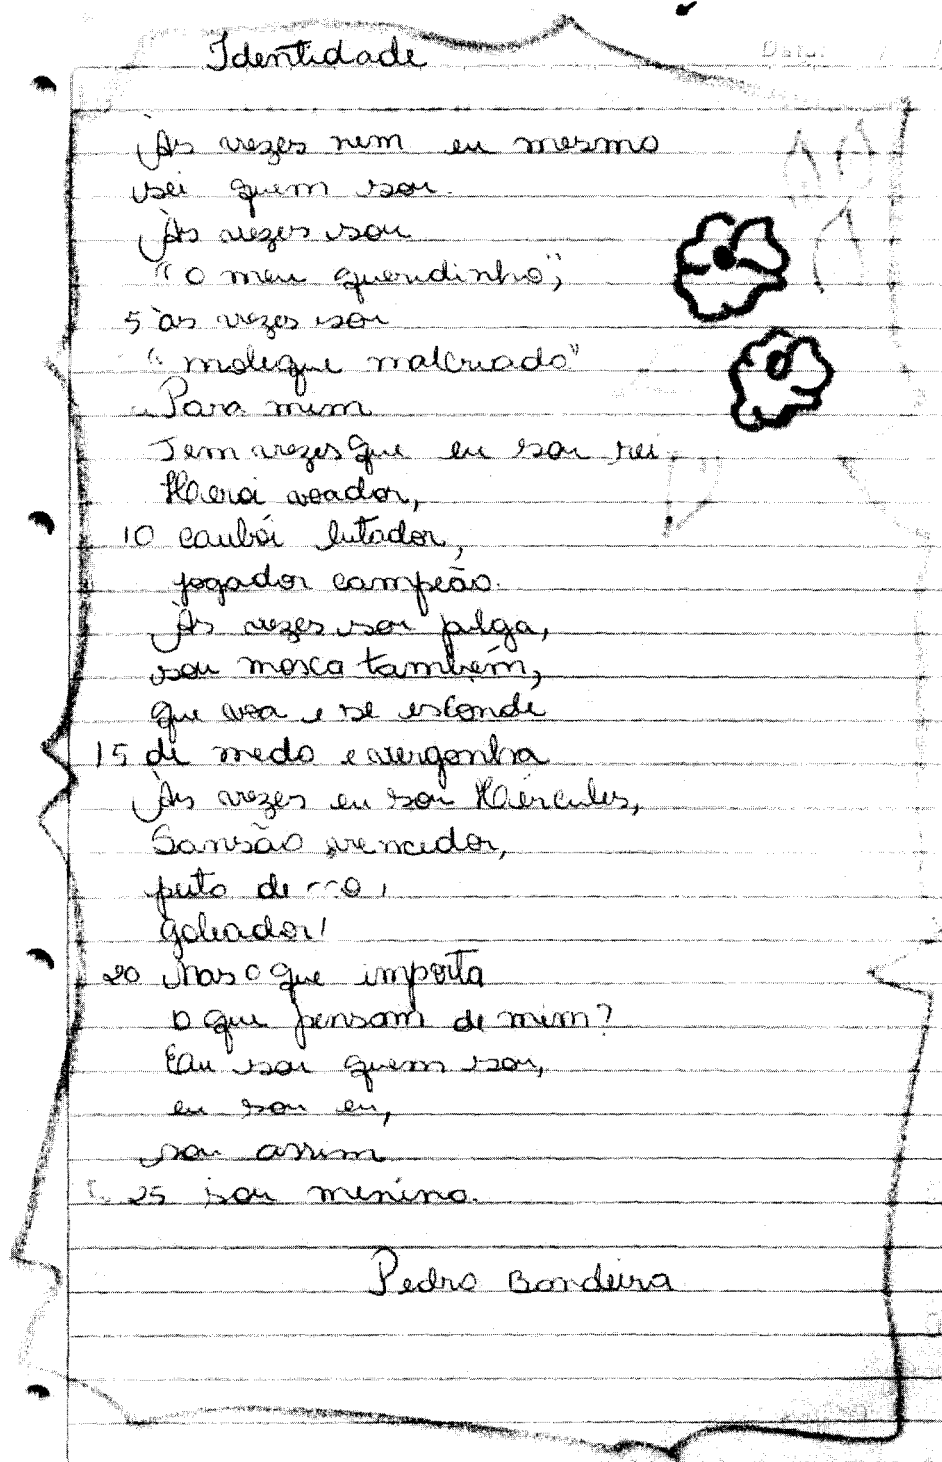 Identidade
Às vezes nem eu mesmo
sei quem sou.
Às vezes sou
"o meu queridinho",
5 às vezes sou
"moleque malcriado"
Para mim
Tem vezes que eu sou rei.
Herói voador,
10 caubói lutador,
jogador campeão.
Às vezes sou pulga,
sou mosca também,
que voa e se esconde
15 de medo e vergonha
Às vezes eu sou Hércules,
Sansão vencedor,
peito de
goleador!
20 Mas o que importa
o que pensam de mim?
Eu sou quem sou,
eu sou eu,
sou assim
25 sou menino.
Pedro Bandeira